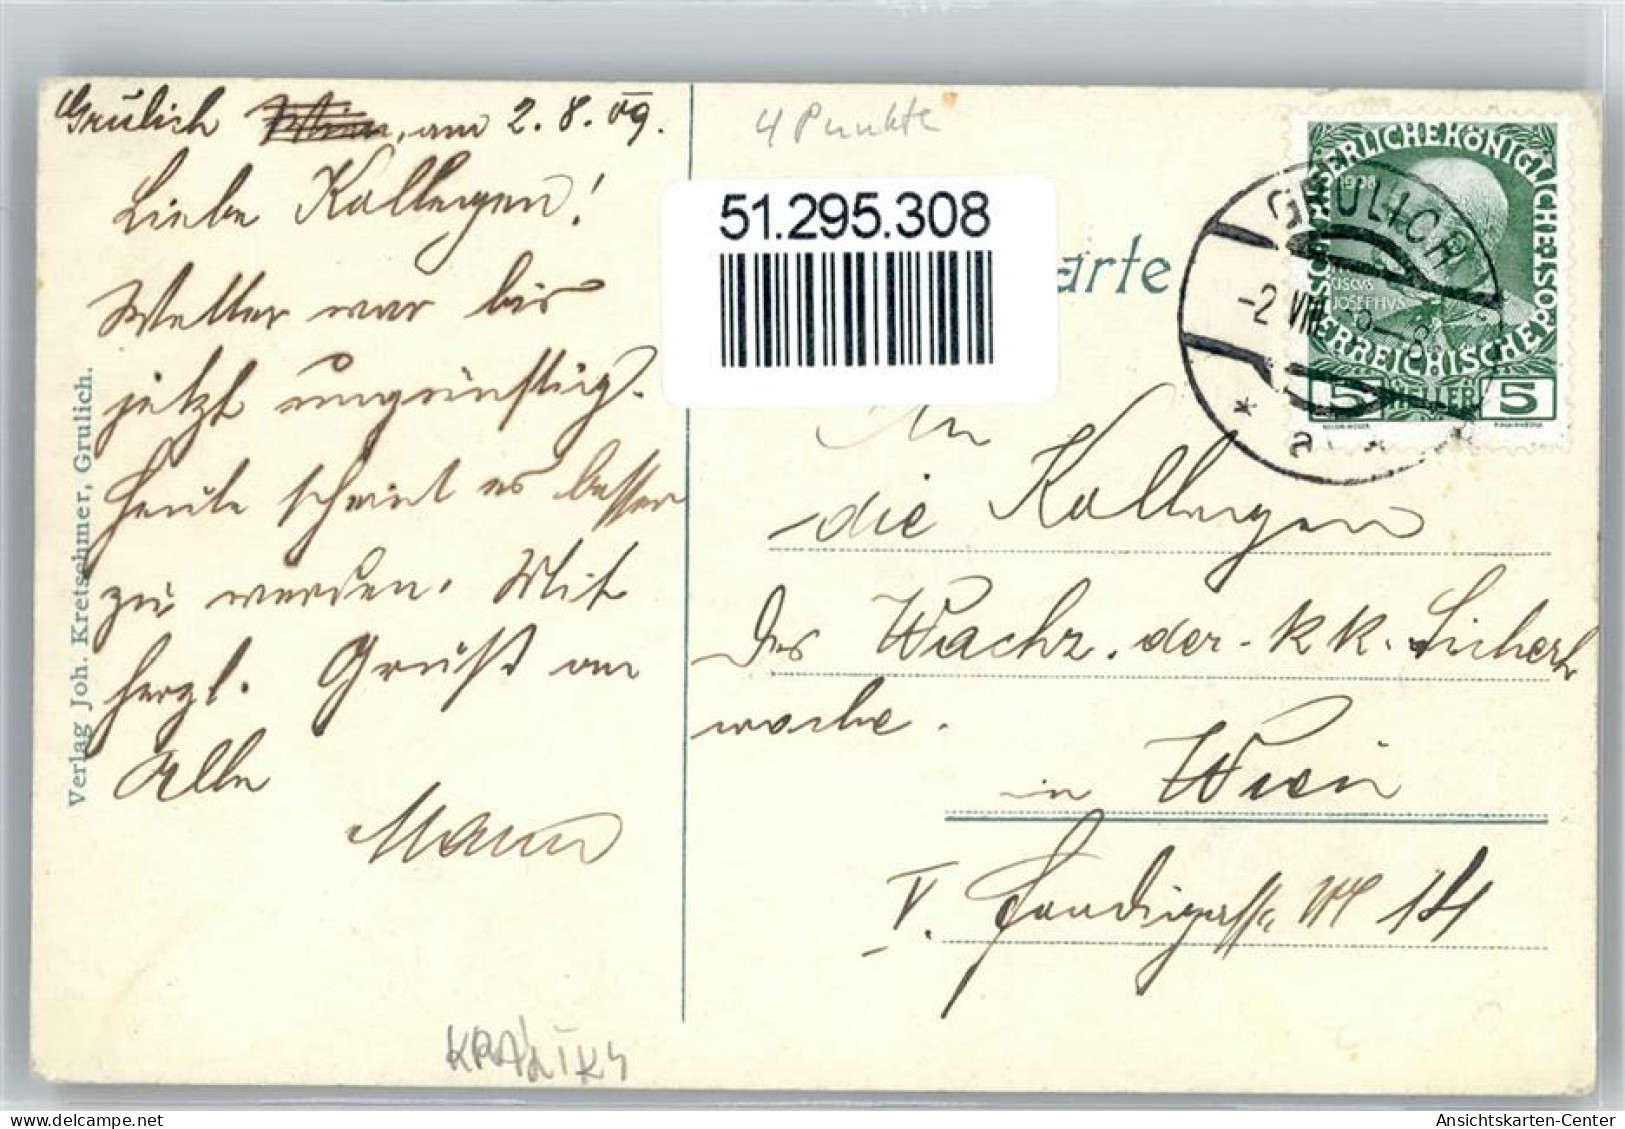 Grulich Wien, am 2.8.09.
Liebe Kollegen!
Wetter war bis
jetzt ungünstig.
Heute scheint es besser
zu werden. Mit
herzl. Gruß an
Alle
Mann
Verlag Joh. Kretschmer, Grulich.
KRALIKY
4 Punkte
51.295.308
arte
KAISERLICHEKÖNIGLICHE ÖSTERREICHISCHE POST
1908
JOSEPHVS
5 HELLER 5
GRULICH
-2 VIII
a
An
die Kollegen
des Wachz. der k k. Sicherh
wache.
in Wien
V. 14
Ansichtskarten-Center